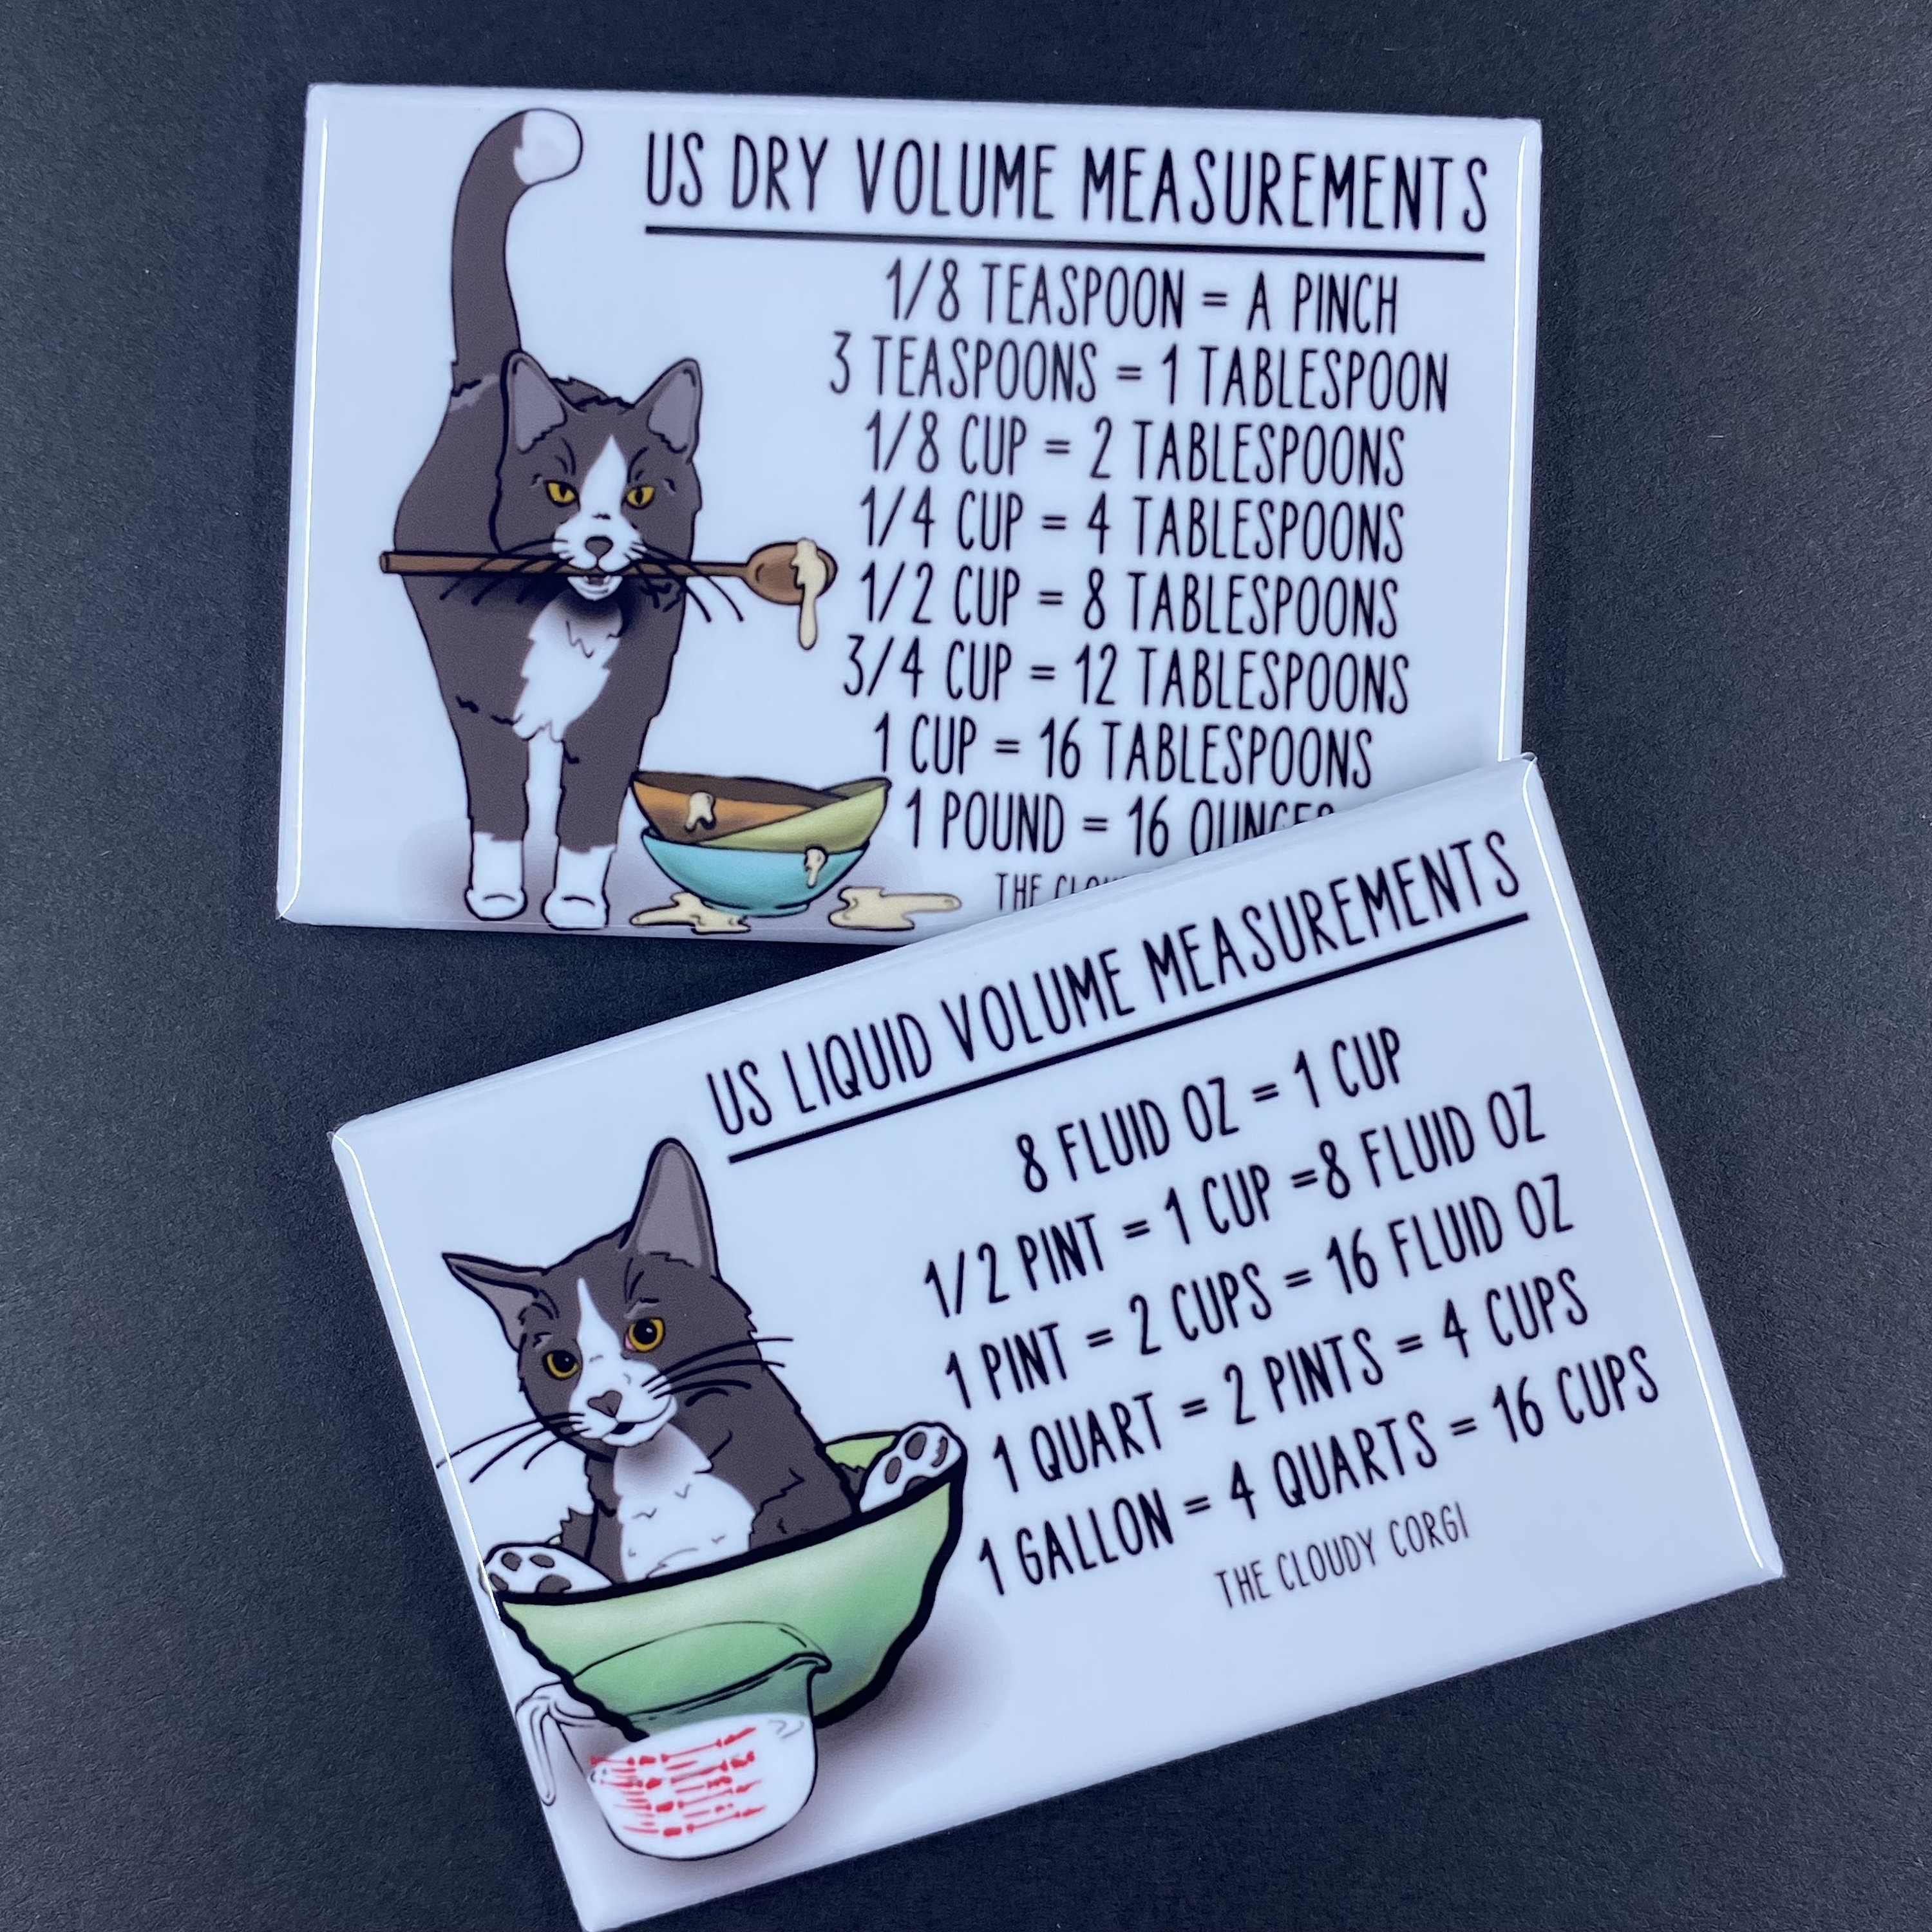 US DRY VOLUME MEASUREMENTS
1/8 TEASPOON = A PINCH
3 TEASPOONS = 1 TABLESPOON
1/8 CUP = 2 TABLESPOONS
1/4 CUP = 4 TABLESPOONS
1/2 CUP = 8 TABLESPOONS
3/4 CUP = 12 TABLESPOONS
1 CUP = 16 TABLESPOONS
1 POUND = 16 OUNCES
THE
US LIQUID VOLUME MEASUREMENTS
8 FLUID OZ = 1 CUP
1/2 PINT = 1 CUP =8 FLUID OZ
1 PINT = 2 CUPS = 16 FLUID OZ
1 QUART = 2 PINTS = 4 CUPS
1 GALLON = 4 QUARTS = 16 CUPS
THE CLOUDY CORGI